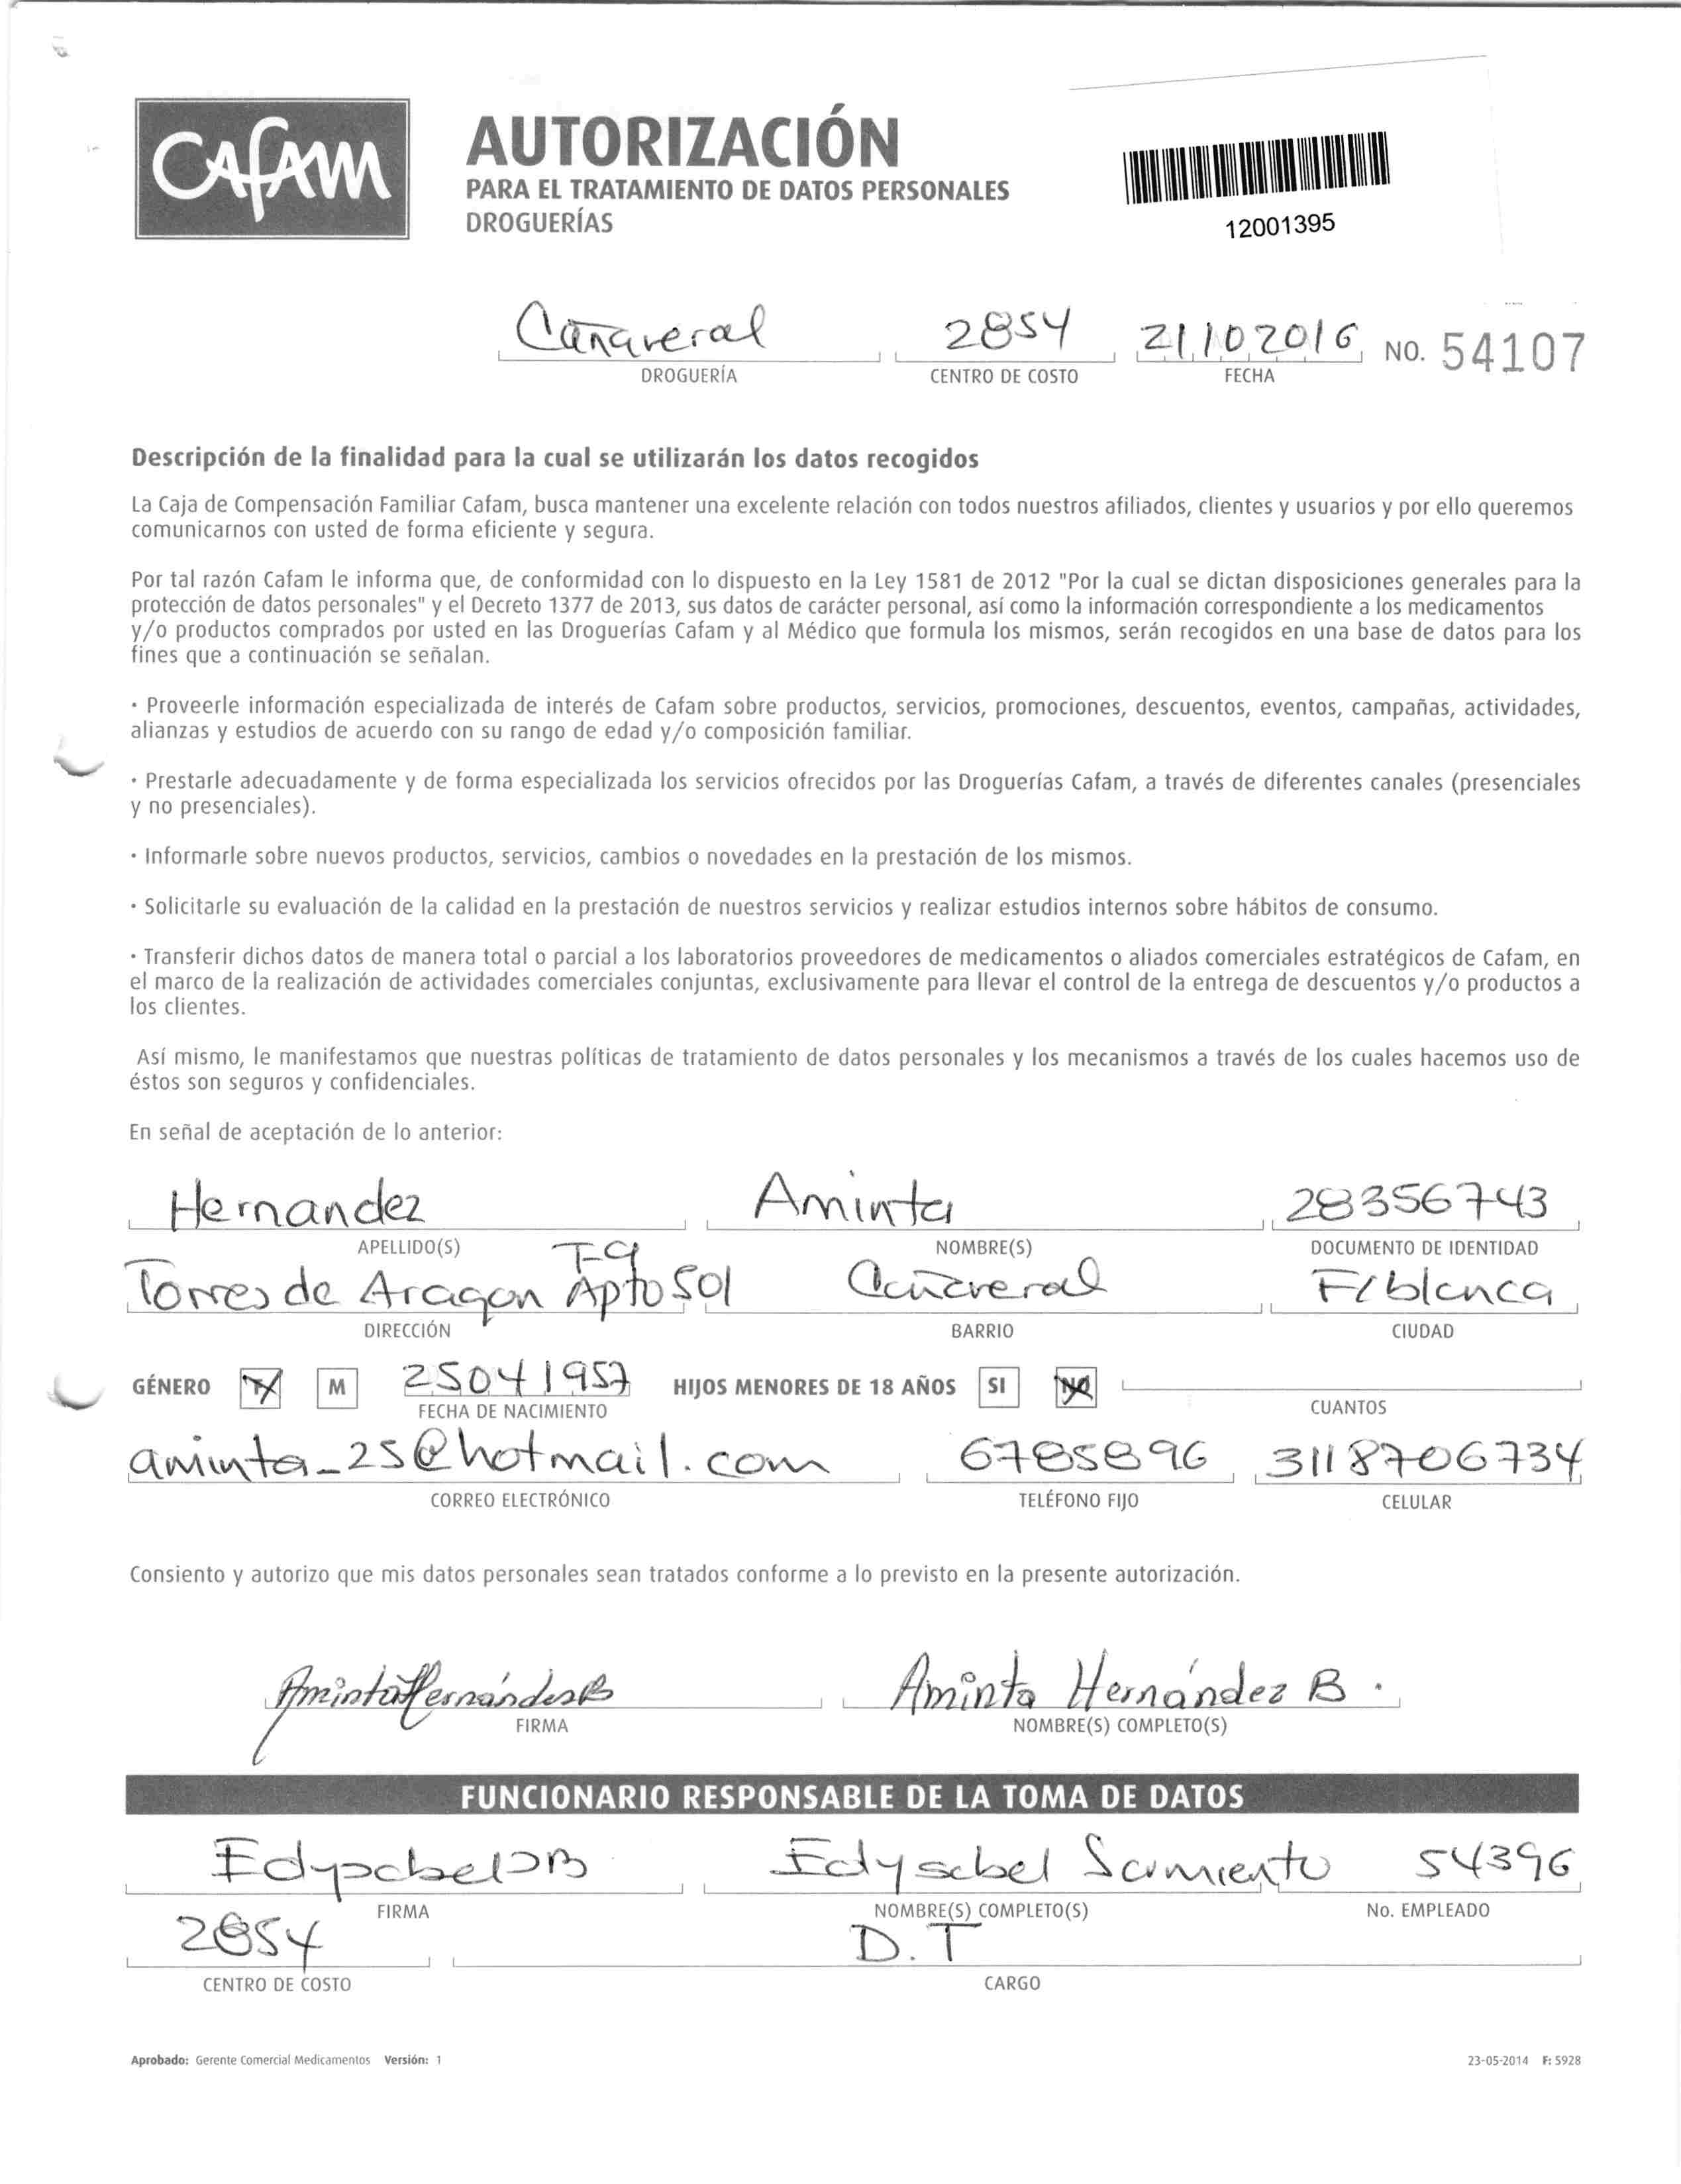 CAFAM
AUTORIZACIÓN
PARA EL TRATAMIENTO DE DATOS PERSONALES
DROGUERÍAS
12001395
Cañaveral 2854 21102016 NO. 54107
DROGUERÍA CENTRO DE COSTO FECHA
Descripción de la finalidad para la cual se utilizarán los datos recogidos
La Caja de Compensación Familiar Cafam, busca mantener una excelente relación con todos nuestros afiliados, clientes y usuarios y por ello queremos
comunicarnos con usted de forma eficiente y segura.
Por tal razón Cafam le informa que, de conformidad con lo dispuesto en la Ley 1581 de 2012 "Por la cual se dictan disposiciones generales para la
protección de datos personales" y el Decreto 1377 de 2013, sus datos de carácter personal, así como la información correspondiente a los medicamentos
y/o productos comprados por usted en las Droguerías Cafam y al Médico que formula los mismos, serán recogidos en una base de datos para los
fines que a continuación se señalan.
· Proveerle información especializada de interés de Cafam sobre productos, servicios, promociones, descuentos, eventos, campañas, actividades,
alianzas y estudios de acuerdo con su rango de edad y/o composición familiar.
· Prestarle adecuadamente y de forma especializada los servicios ofrecidos por las Droguerías Cafam, a través de diferentes canales (presenciales
y no presenciales).
· Informarle sobre nuevos productos, servicios, cambios o novedades en la prestación de los mismos.
· Solicitarle su evaluación de la calidad en la prestación de nuestros servicios y realizar estudios internos sobre hábitos de consumo.
· Transferir dichos datos de manera total o parcial a los laboratorios proveedores de medicamentos o aliados comerciales estratégicos de Cafam, en
el marco de la realización de actividades comerciales conjuntas, exclusivamente para llevar el control de la entrega de descuentos y/o productos a
los clientes.
Así mismo, le manifestamos que nuestras políticas de tratamiento de datos personales y los mecanismos a través de los cuales hacemos uso de
éstos son seguros y confidenciales.
En señal de aceptación de lo anterior:
Hernandez Aminta 28356743
APELLIDO(S) NOMBRE(S) DOCUMENTO DE IDENTIDAD
T-9
Torres de Aragon Apto 501 Cañaveral F/blanca
DIRECCIÓN BARRIO CIUDAD
GÉNERO F M 25041957 HIJOS MENORES DE 18 AÑOS SI NO
FECHA DE NACIMIENTO CUANTOS
aminta_25@hotmail.com 6785896 3118706734
CORREO ELECTRÓNICO TELÉFONO FIJO CELULAR
Consiento y autorizo que mis datos personales sean tratados conforme a lo previsto en la presente autorización.
Aminta Hernández B Aminta Hernández B.
FIRMA NOMBRE(S) COMPLETO(S)
FUNCIONARIO RESPONSABLE DE LA TOMA DE DATOS
Edysabel Sarmiento 54396
FIRMA NOMBRE(S) COMPLETO(S) No. EMPLEADO
2854 D.T
CENTRO DE COSTO CARGO
Aprobado: Gerente Comercial Medicamentos Versión: 1 23-05-2014 F: 5928